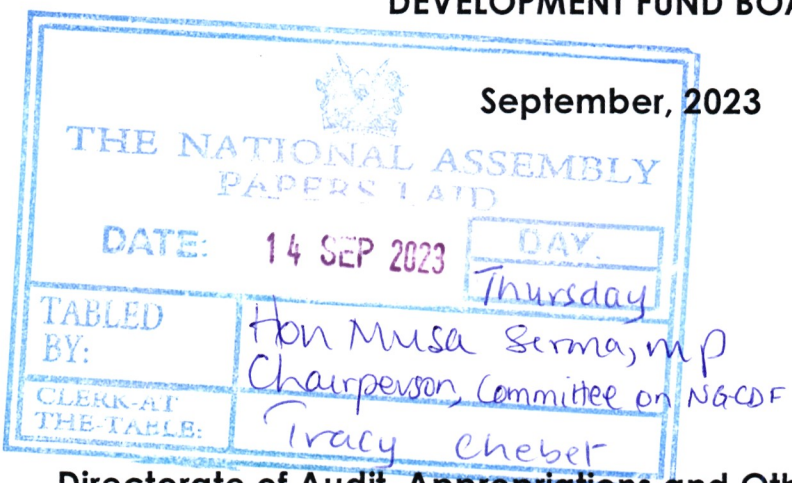 DEVELOPMENT FUND BOA
September, 2023
THE NATIONAL ASSEMBLY
PAPERS LAID
DATE: 14 SEP 2023
DAY.
Thursday
TABLED BY:
Hon Musa Serma, MP
Chairperson, Committee on NG-CDF
CLERK-AT THE-TABLE:
Tracy Chebet
Directorate of Audit, Appropriations and Oth